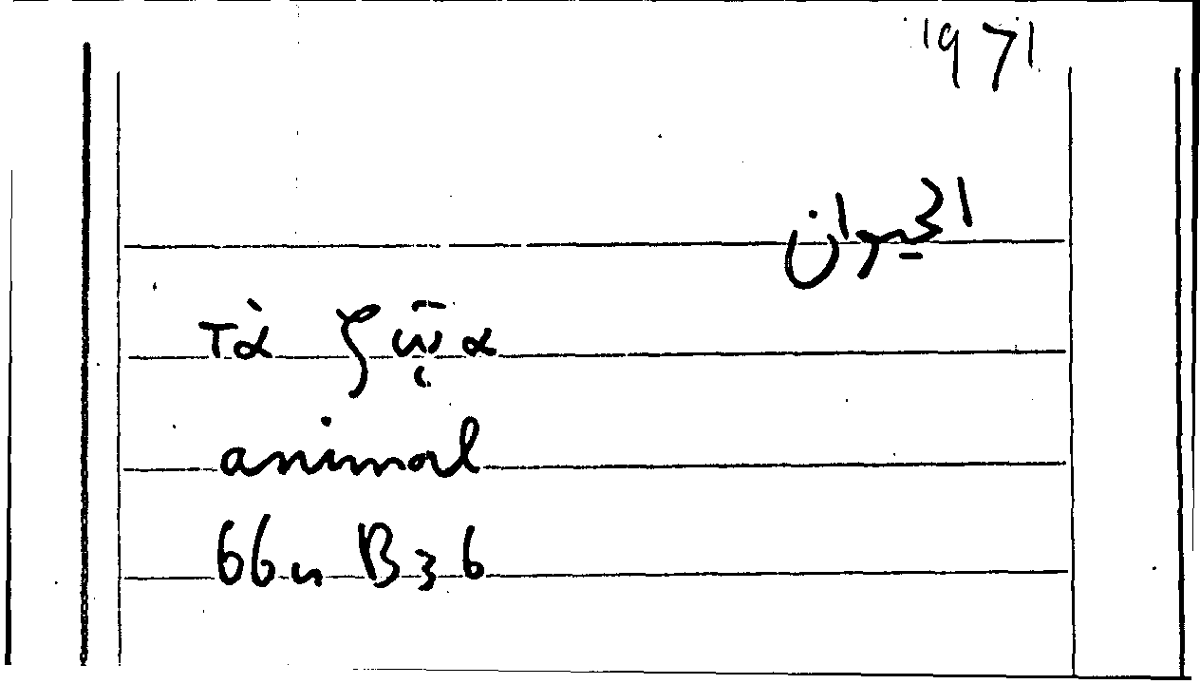 1971
الحيوان
τὰ ζῷα
animal
66a B36